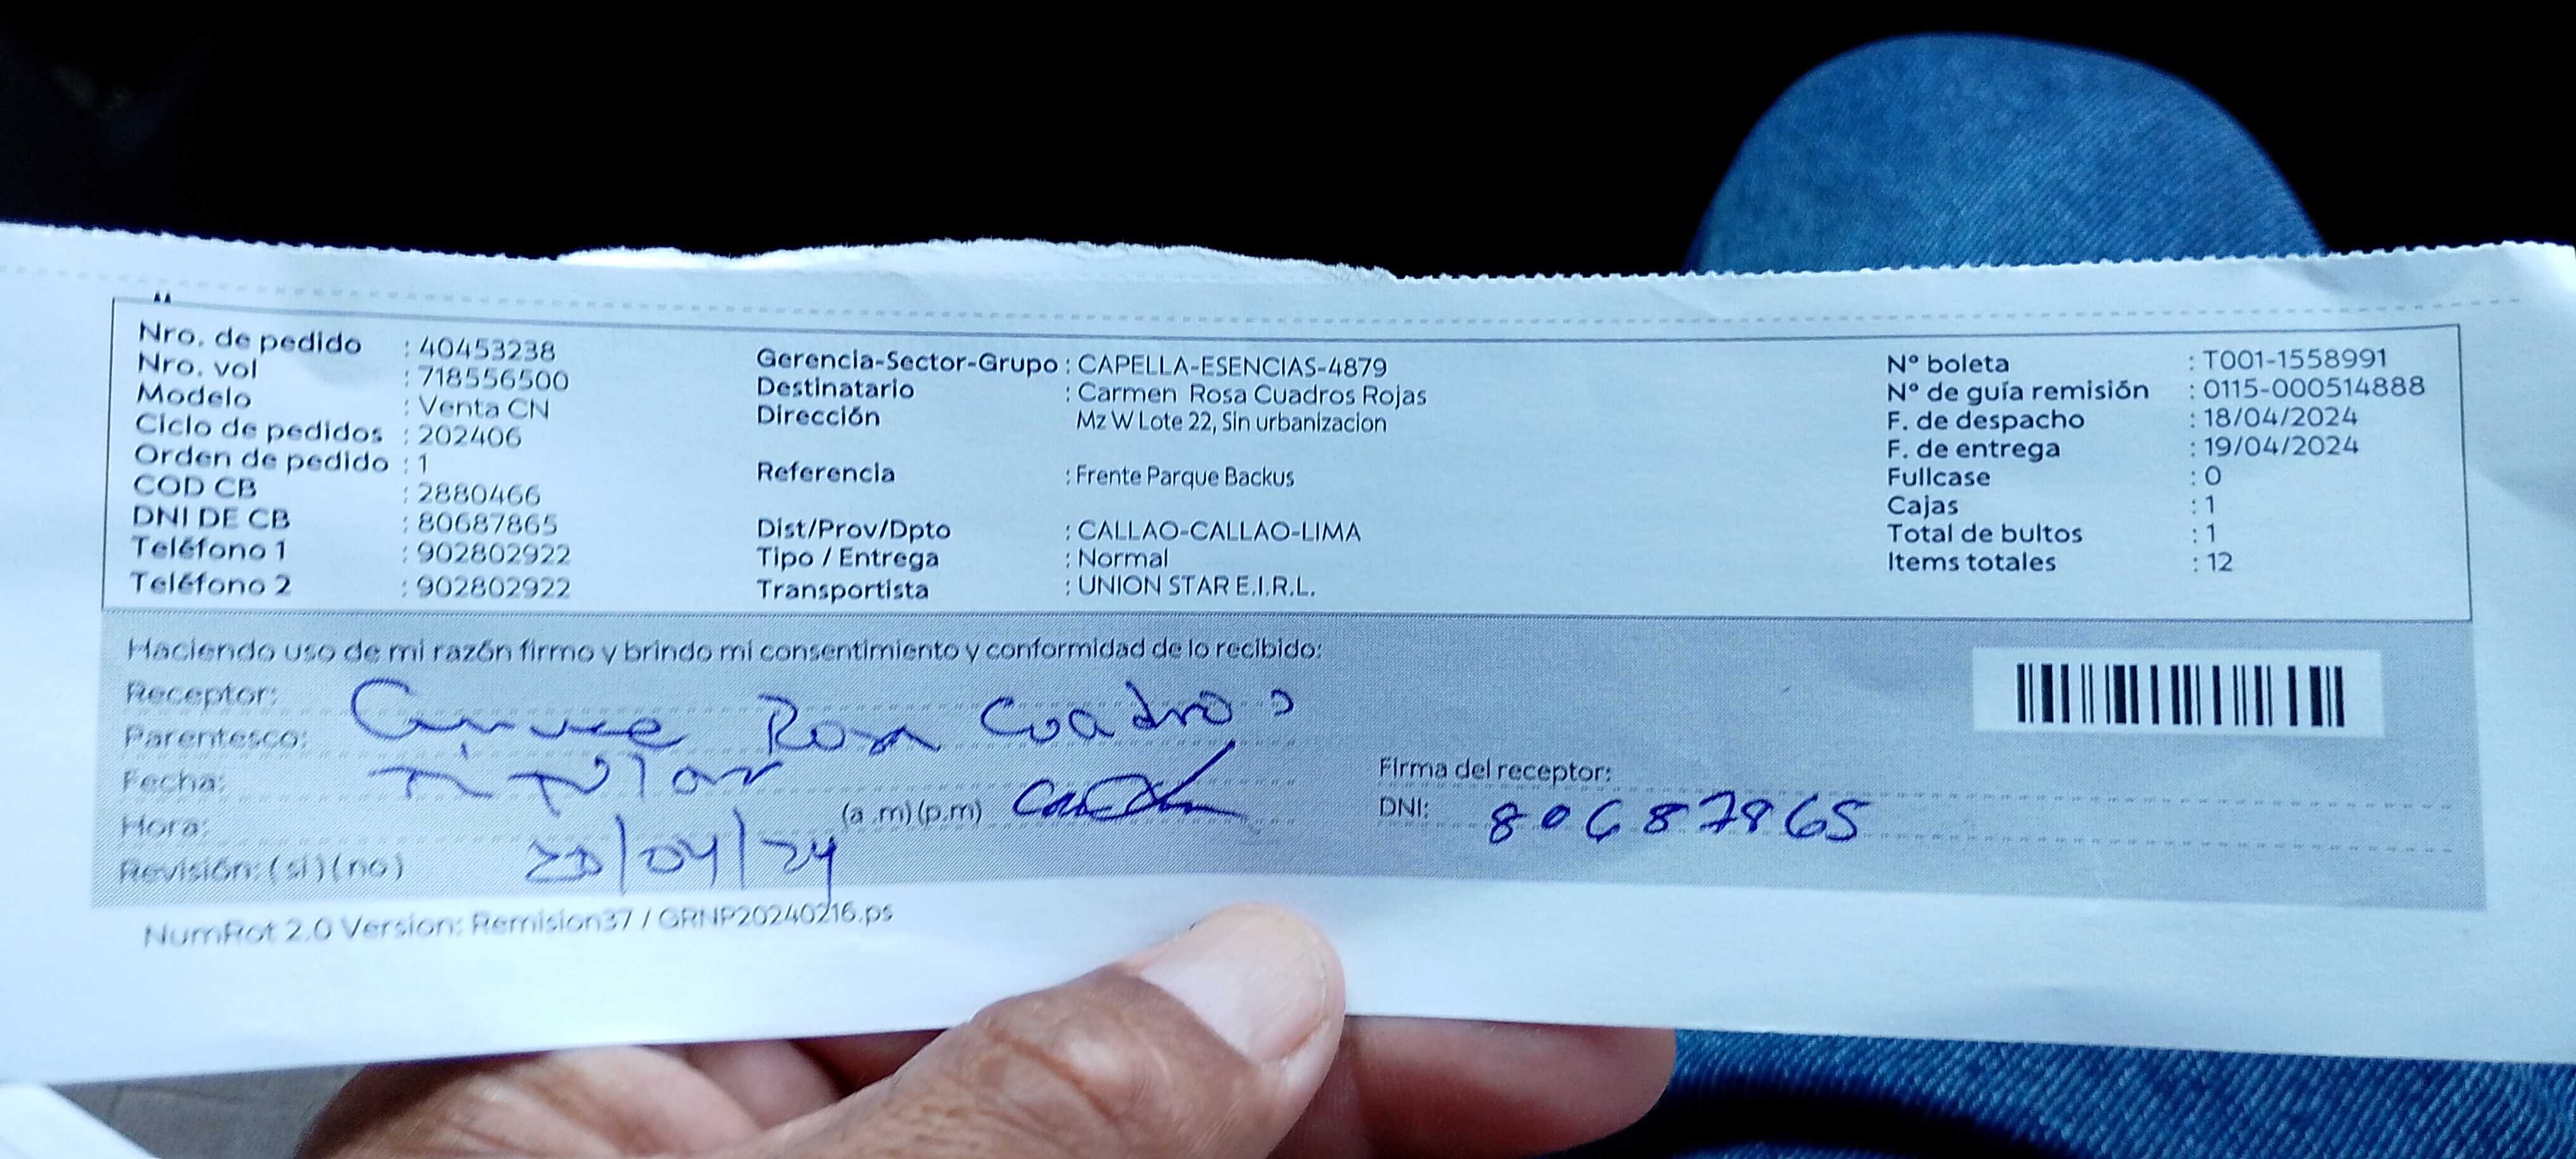 Nro. de pedido : 40453238
Nro. vol : 718556500
Modelo : Venta CN
Ciclo de pedidos : 202406
Orden de pedido : 1
COD CB : 2880466
DNI DE CB : 80687865
Teléfono 1 : 902802922
Teléfono 2 : 902802922
Gerencia-Sector-Grupo : CAPELLA-ESENCIAS-4879
Destinatario : Carmen Rosa Cuadros Rojas
Dirección Mz W Lote 22, Sin urbanizacion
Referencia : Frente Parque Backus
Dist/Prov/Dpto : CALLAO-CALLAO-LIMA
Tipo / Entrega : Normal
Transportista : UNION STAR E.I.R.L.
N° boleta : T001-1558991
N° de guía remisión : 0115-000514888
F. de despacho : 18/04/2024
F. de entrega : 19/04/2024
Fullcase : 0
Cajas : 1
Total de bultos : 1
Items totales : 12
Haciendo uso de mi razón firmo y brindo mi consentimiento y conformidad de lo recibido:
Receptor: Carmen Rosa Cuadros
Parentesco: Titular
Fecha:
Hora: (a .m) (p.m)
20/04/24
Revisión: ( si ) ( no )
Firma del receptor:
DNI: 80687865
NumRot 2.0 Version: Remision37 / GRNP20240216.ps